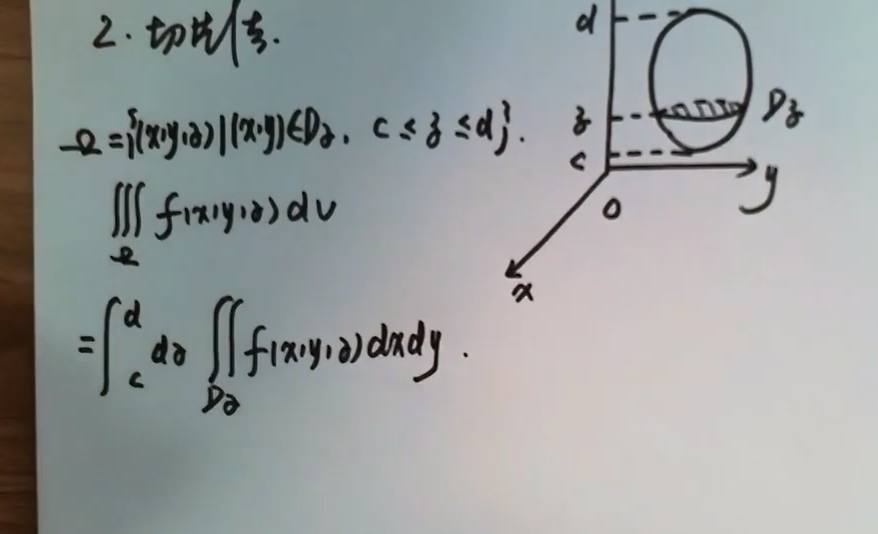 2. 切片法.
Ω = {(x,y,z)|(x,y)∈Dz, c ≤ z ≤ d}.
∭Ω f(x,y,z) dv
= ∫_c^d dz ∬_{Dz} f(x,y,z) dx dy .
d
z
c
Dz
y
0
x